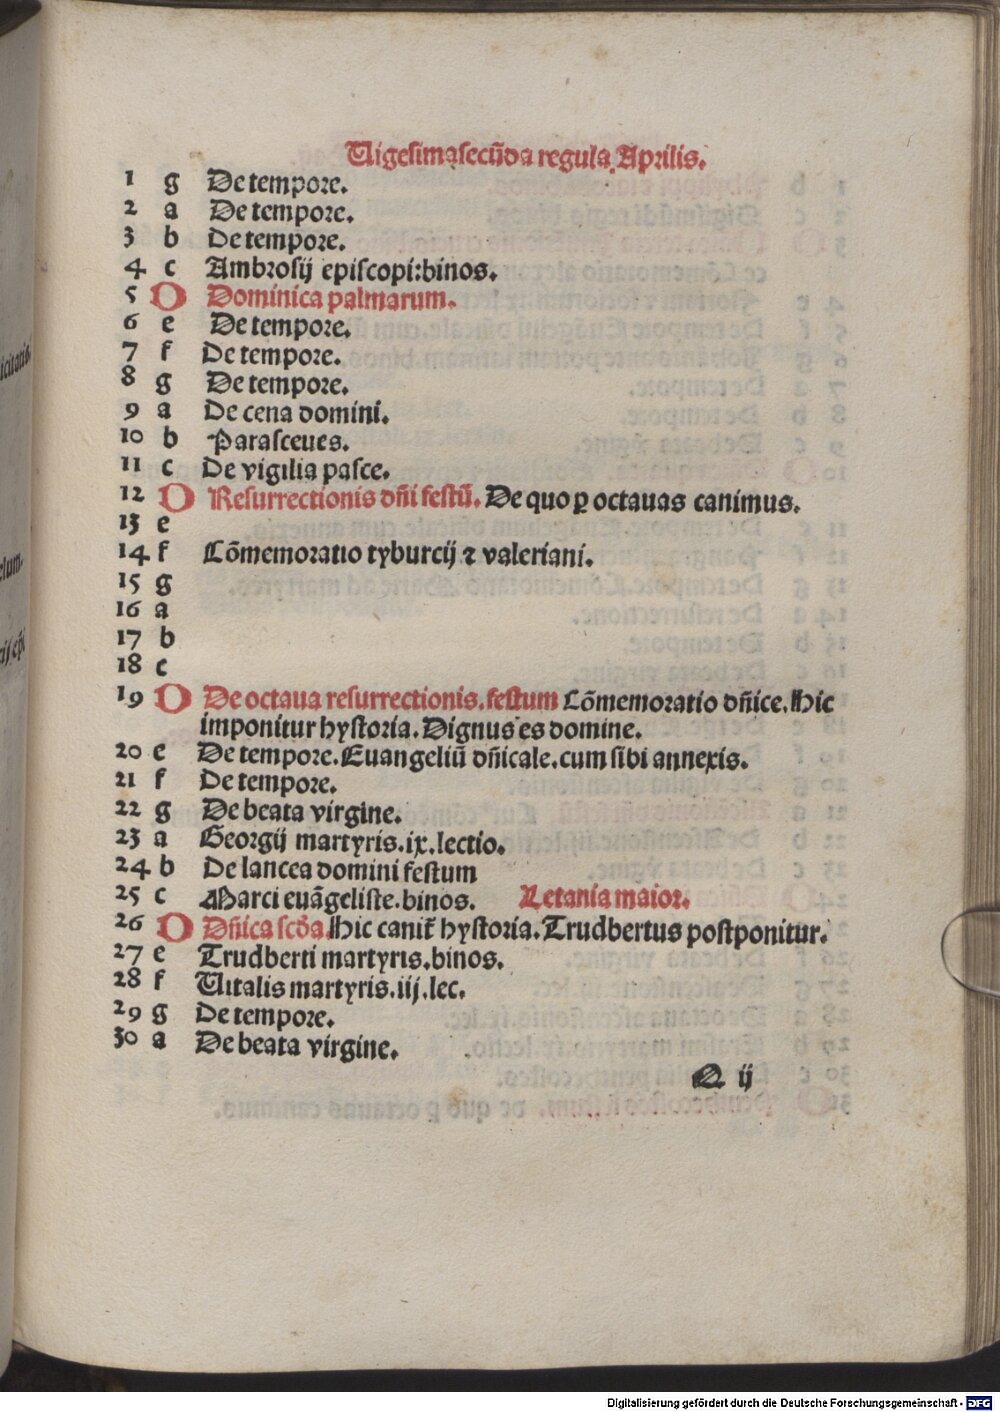 Uigesimasecūda regula Aprilis.
1 g De tempore.
2 a De tempore.
3 b De tempore.
4 c Ambrosij episcopi: binos.
5 D Dominica palmarum.
6 e De tempore.
7 f De tempore.
8 g De tempore.
9 a De cena domini.
10 b Parasceues.
11 c De vigilia pasce.
12 D Resurrectionis dn̄i festū. De quo ꝑ octauas canimus.
13 e
14 f Cōmemoratio tyburcij ⁊ valeriani.
15 g
16 a
17 b
18 c
19 D De octaua resurrectionis. festum Cōmemoratio dn̄ice. Hic
imponitur hystoria. Dignus es domine.
20 e De tempore. Euangeliū dn̄icale. cum sibi annexis.
21 f De tempore.
22 g De beata virgine.
23 a Georgij martyris. ix. lectio.
24 b De lancea domini festum
25 c Marci euāgeliste. binos. Letania maior.
26 D Dn̄ica scd̄a. Hic canit᷑ hystoria. Trudbertus postponitur.
27 e Trudberti martyris. binos.
28 f Uitalis martyris. iij. lec.
29 g De tempore.
30 a De beata virgine.
Q ij
Digitalisierung gefördert durch die Deutsche Forschungsgemeinschaft - DFG